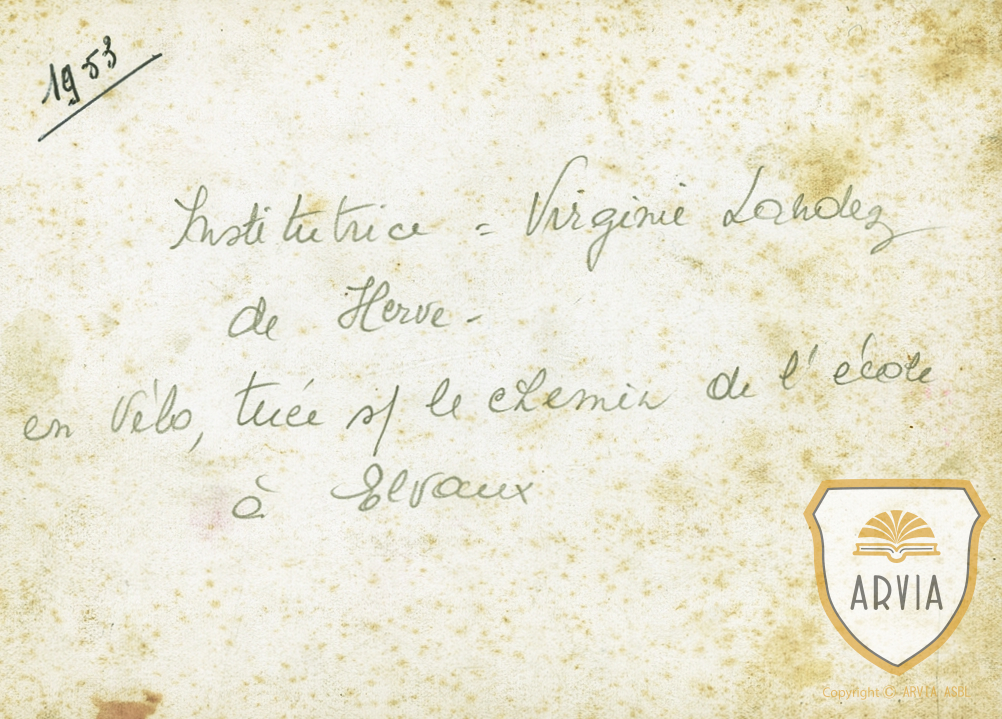 1953
Institutrice = Virginie Landez
de Herve -
en Vélo, tuée s/ le chemin de l'école
à Elvaux
ARVIA
Copyright © ARVIA ASBL